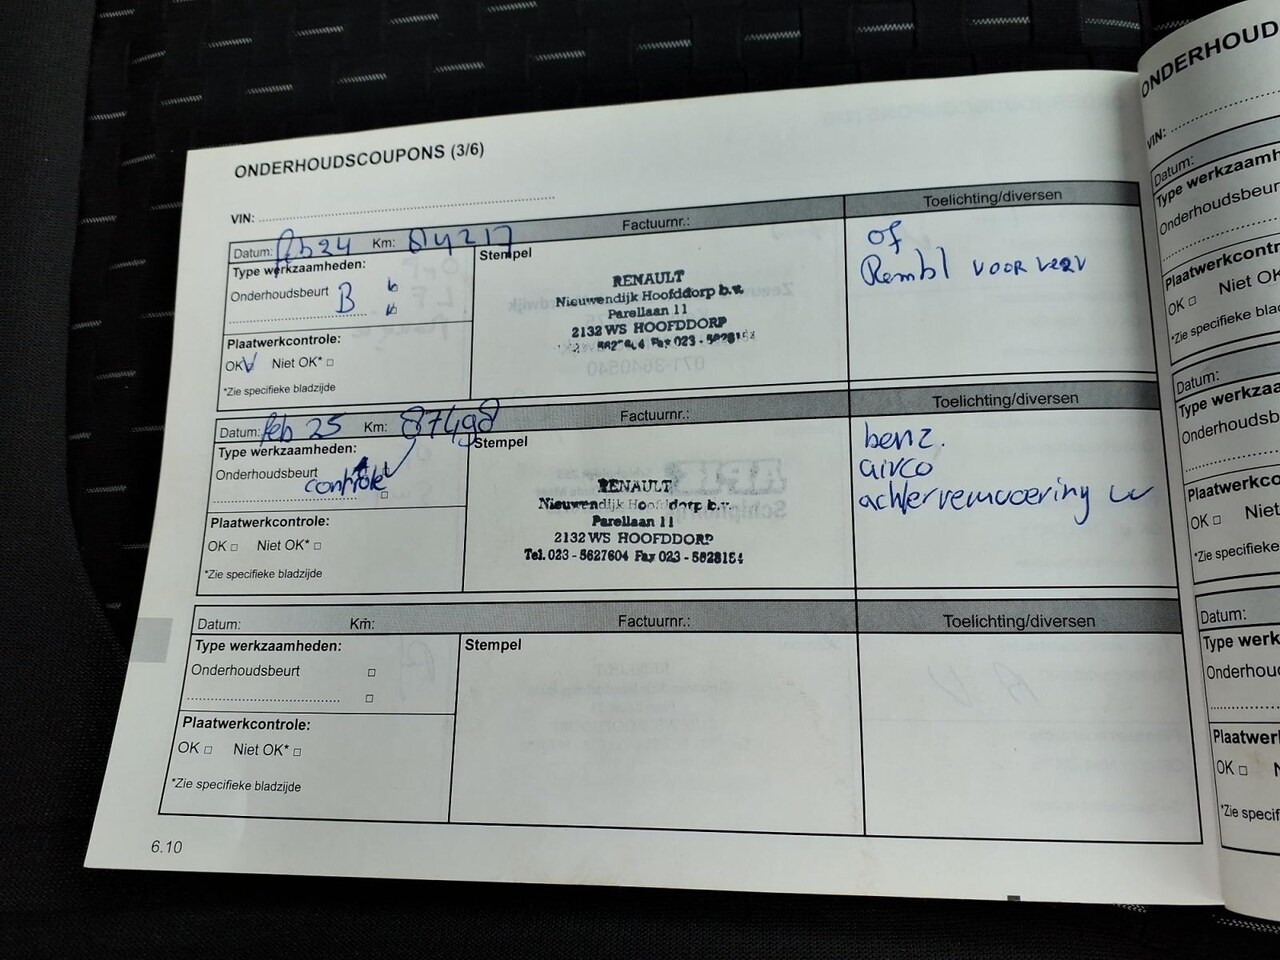 ONDERHOUDSCOUPONS (3/6)
VIN:
Datum: feb 24 Km: 84217 Factuurnr.: Toelichting/diversen
Type werkzaamheden:
Onderhoudsbeurt B
Plaatwerkcontrole:
OK V Niet OK*
*Zie specifieke bladzijde
Stempel
RENAULT
Nieuwendijk Hoofddorp b.v.
Parellaan 11
2132 WS HOOFDDORP
Fax 023 - 5628154
of
Rembl voor verv
Datum: feb 25 Km: 87498 Factuurnr.: Toelichting/diversen
Type werkzaamheden:
Onderhoudsbeurt
controle
Plaatwerkcontrole:
OK Niet OK*
*Zie specifieke bladzijde
Stempel
RENAULT
Nieuwendijk Hoofddorp b.v.
Parellaan 11
2132 WS HOOFDDORP
Tel. 023 - 5627604 Fax 023 - 5628154
benz.
airco
Datum: Km: Factuurnr.: Toelichting/diversen
Type werkzaamheden:
Onderhoudsbeurt
Plaatwerkcontrole:
OK Niet OK*
*Zie specifieke bladzijde
Stempel
6.10
ONDERHOUD
VIN:
Datum:
Type werkzaamh
Onderhoudsbeur
Plaatwerkcontr
OK Niet OK
*Zie specifieke bla
Datum:
Type werkza
Onderhouds
Plaatwerkco
OK Niet
*Zie specifiek
Datum:
Type werk
Onderhoud
Plaatwer
OK N
*Zie specif